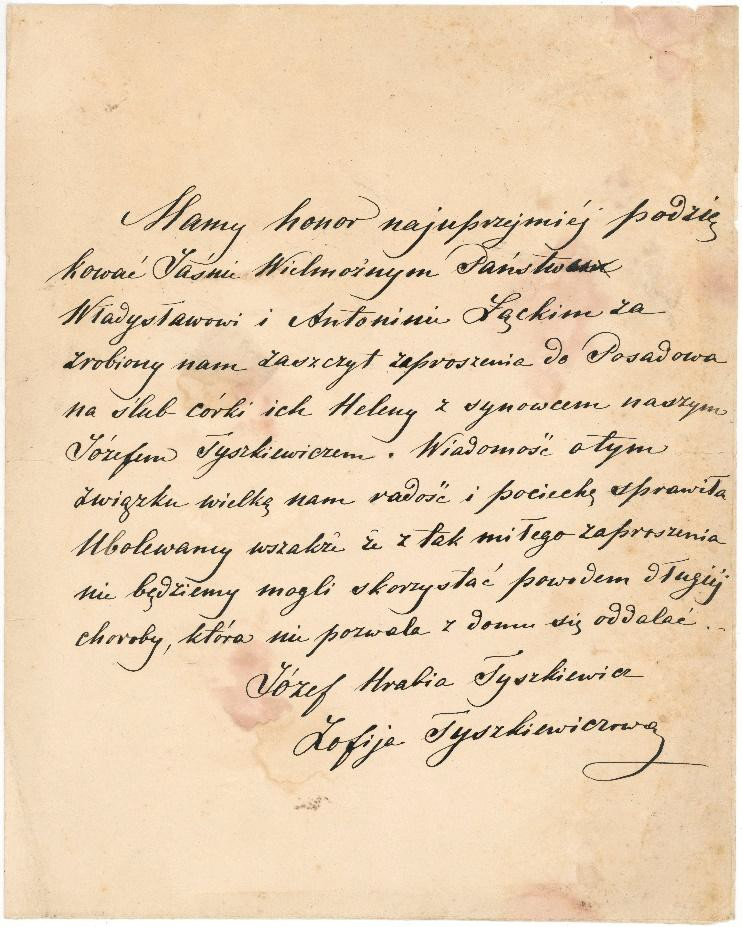 Mamy honor najuprzejmiéj podzię
kować Jaśnie Wielmożnym Państwu
Władysławowi i Antoninie Łąckim za
zrobiony nam zaszczyt zaproszenia do Posadowa
na ślub córki ich Heleny z synowcem naszym
Józefem Tyszkiewiczem. Wiadomość o tym
związku wielką nam radość i pociechę sprawiła
Ubolewamy wszakże że z tak miłego zaproszenia
nie będziemy mogli skorzystać powodem długiéj
choroby, która nie pozwala z domu się oddalać.
Józef Hrabia Tyszkiewicz
Zofija Tyszkiewiczowa